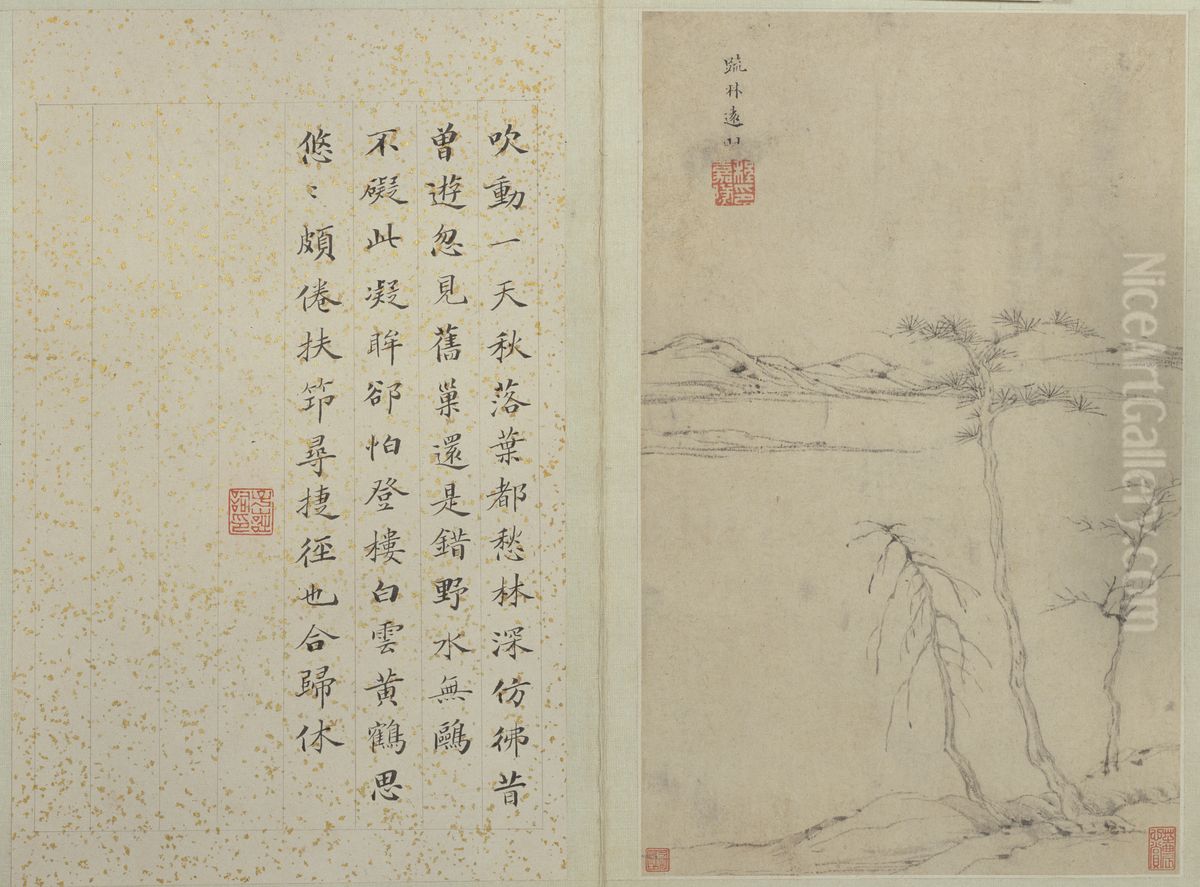 疏林遠山
吹動一天秋落葉都愁林深仿彿昔
曾遊忽見舊巢還是錯野水無鷗
不礙此凝眸卻怕登樓白雲黃鶴思
悠〻頗倦扶筇尋捷徑也合歸休
NiceArtGallery.com